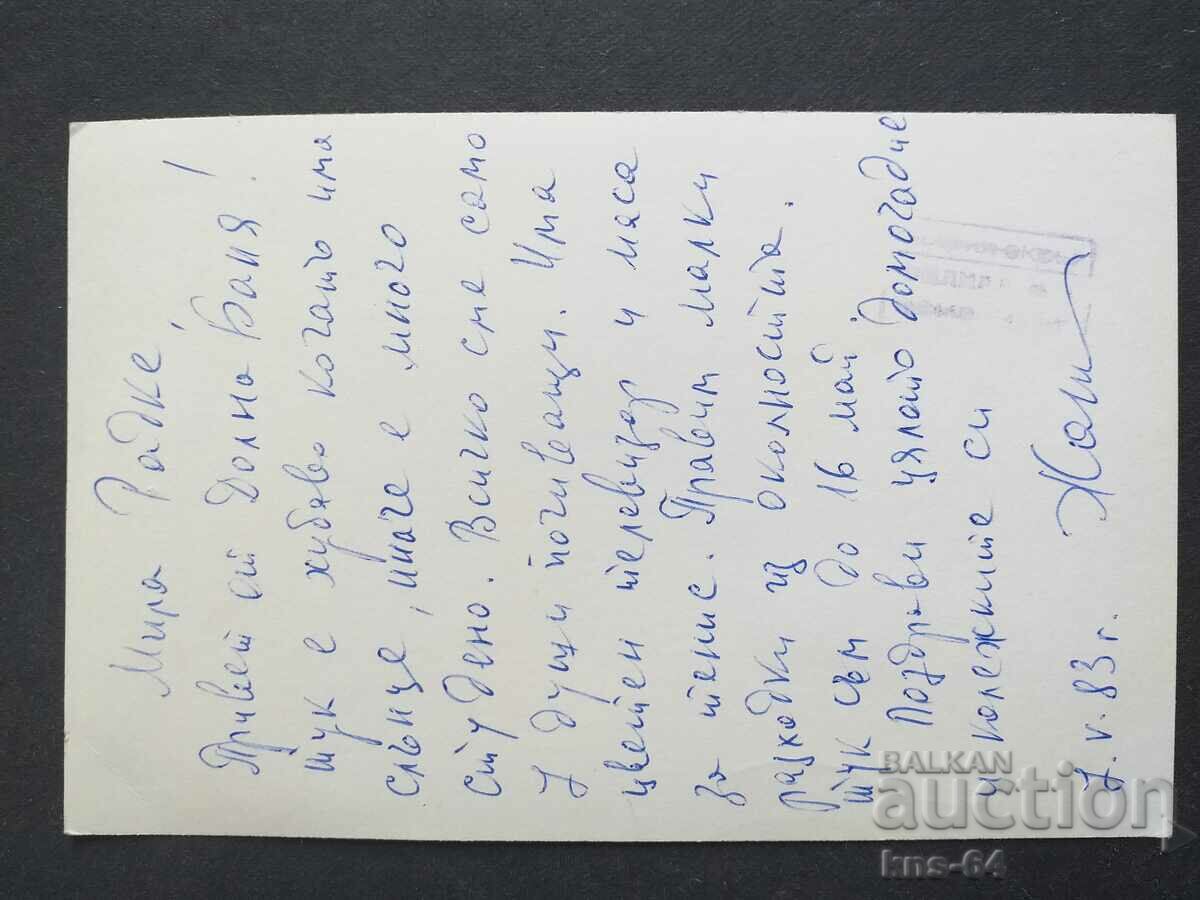 Мира Радке,
Привет от Долна Баня!
тук е хубаво когато има
слънце, иначе е много
студено. Всичко сме само
7 души почиващи. Има
цветен телевизор и маса
за тенис. Правим малки
разходки из околността.
тук съм до 16 май
Поздрави цялото домочадие
и колежките си
7.V.83 г.
BALKAN
auction
kns-64